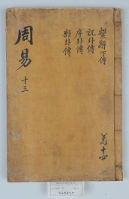 周易
十三
繫辭下傳
說卦傳
序卦傳
雜卦傳